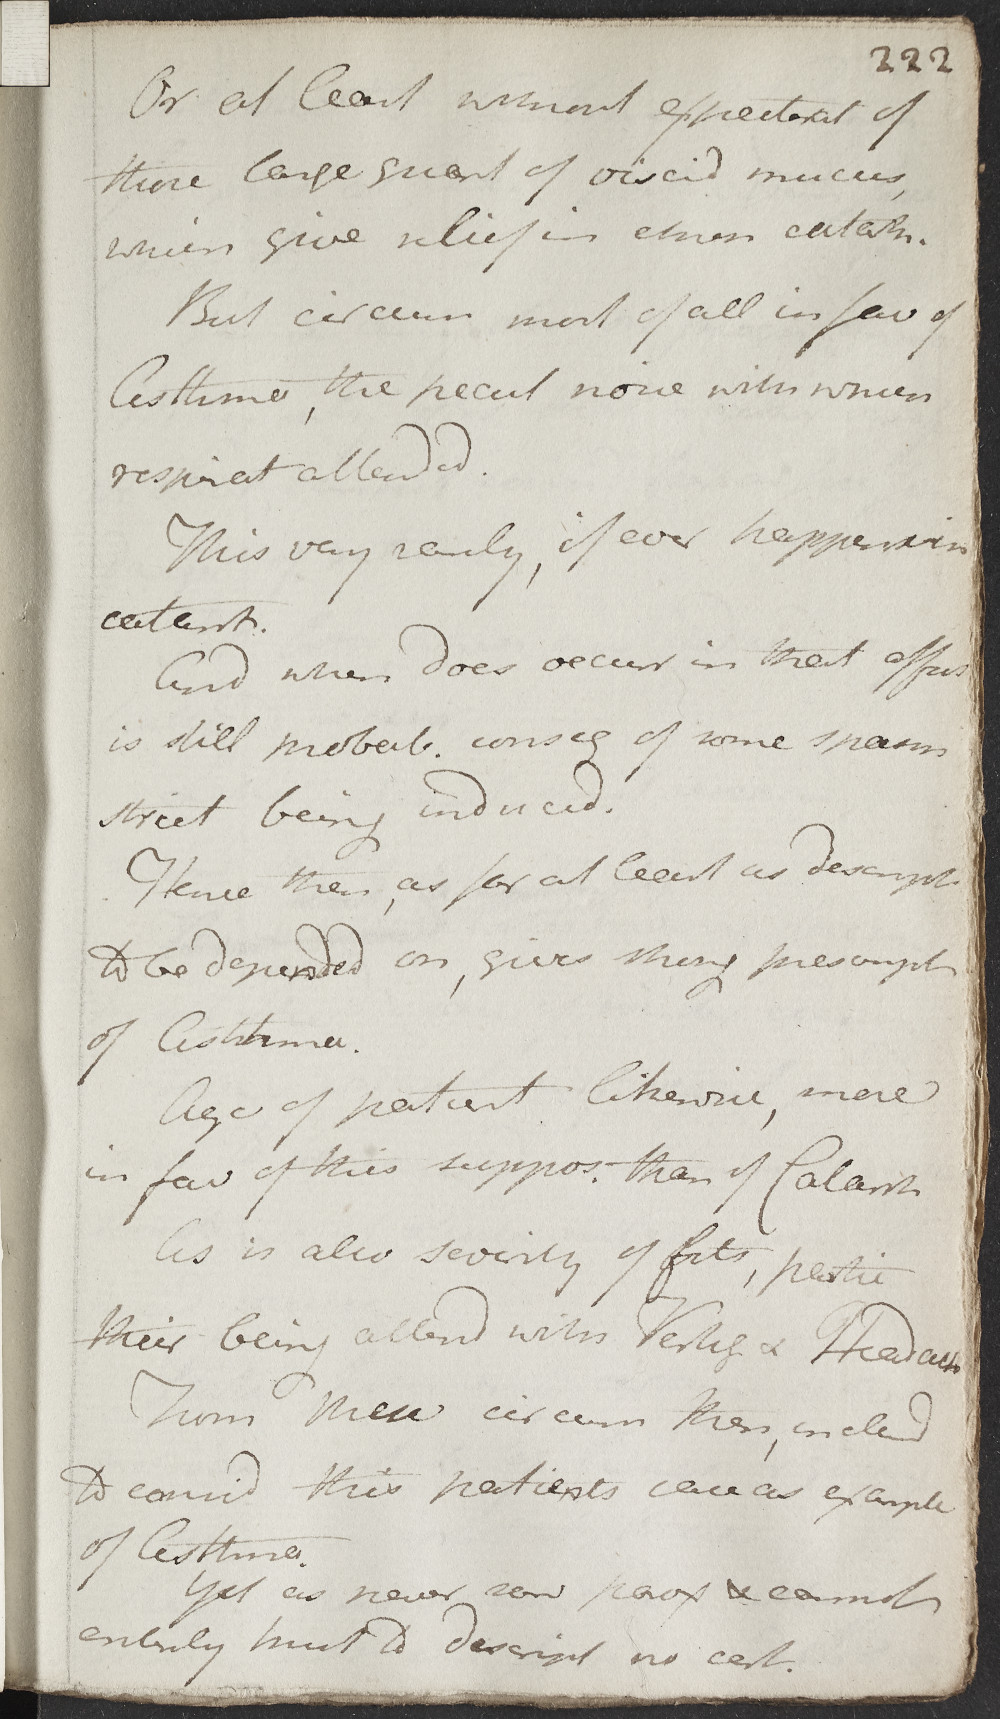 222
Or at least without expectorat of
those large quant of viscid mucus,
which give relief in chron catarh.
But circum most of all in fav of
Asthma, the pecul noise with which
respirat attended.
This very rarely, if ever happens in
catarrh.
And when does occur in that affec
is still probab. conseq of some spasm
strict being induced.
Hence then, as far at least as descript
to be depended on, gives strong presumpt
of Asthma.
Age of patient likewise, more
in fav of this suppos. than of Catarrh
As is also severity of fits, partic
their being attend with Vertig & Headach
From these circum then, inclend
to consid this patients case as example
of Asthma.
Yet as never saw parox & cannot
entirely trust to descript no cert.